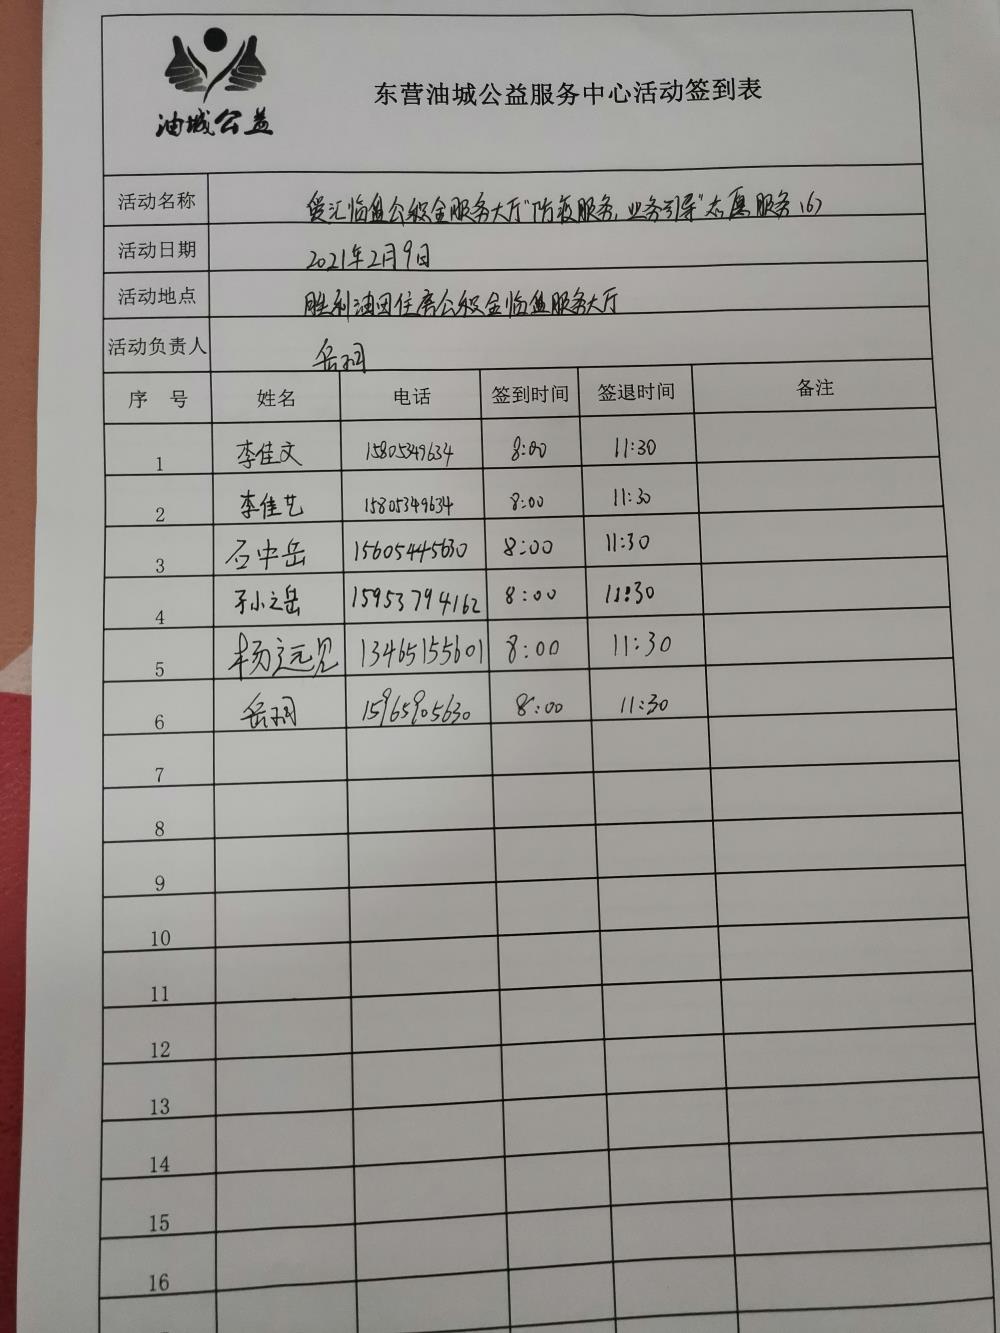 油城公益
东营油城公益服务中心活动签到表
活动名称 爱汇临盘公积金服务大厅"防疫服务、业务引导"志愿服务(6)
活动日期 2021年2月9日
活动地点 胜利油田住房公积金临盘服务大厅
活动负责人 岳羽
序 号 姓名 电话 签到时间 签退时间 备注
1 李佳文 15805349634 8:00 11:30
2 李佳艺 15805349634 8:00 11:30
3 石中岳 15605445630 8:00 11:30
4 孙之岳 15953794162 8:00 11:30
5 杨远见 13465155601 8:00 11:30
6 岳羽 15965905630 8:00 11:30
7
8
9
10
11
12
13
14
15
16